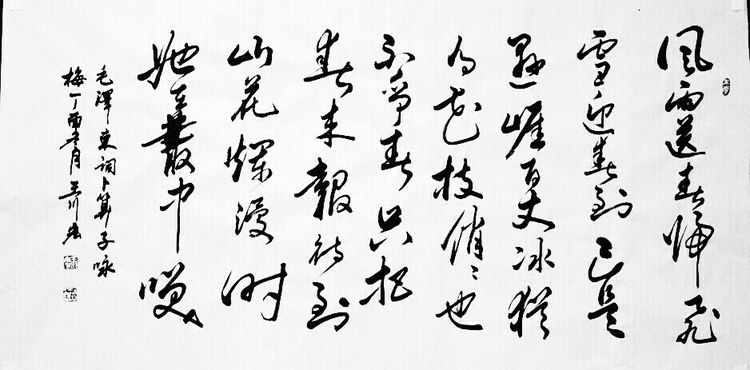 风雨送春归飞
雪迎春到已是
悬崖百丈冰犹
有花枝俏俏也
不争春只把
春来報待到
山花爛漫时
她在叢中笑
毛澤東詞卜算子咏
梅丁酉冬月